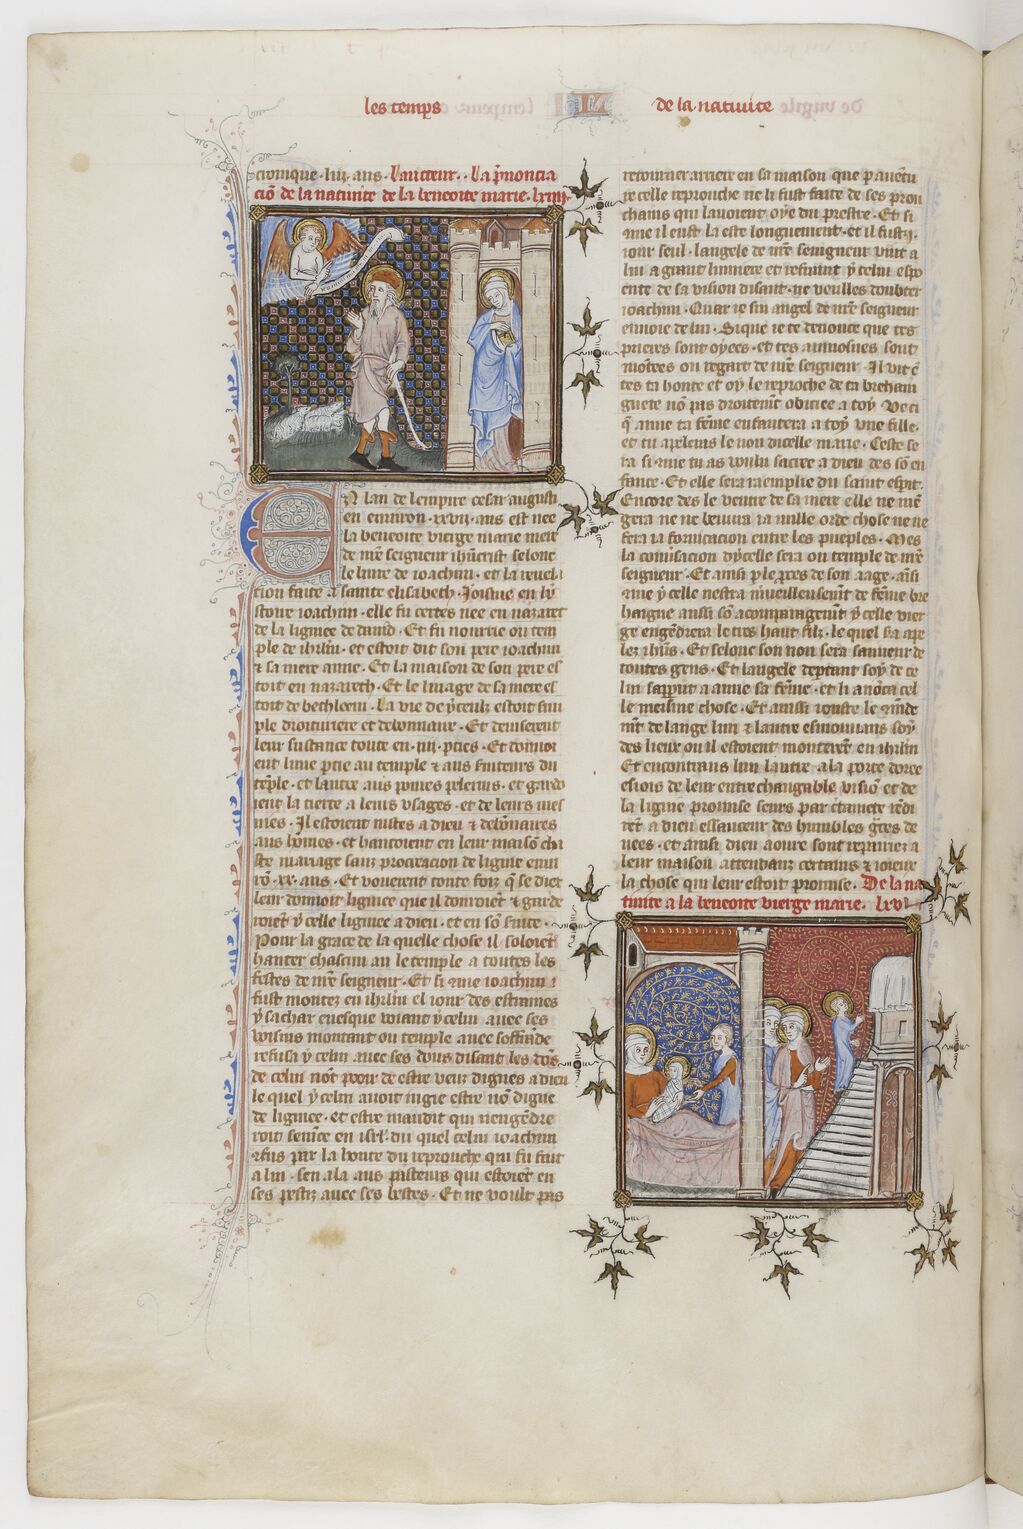 les temps
de la nativite
cronique . liij. ans . L'aucteur . . La p̃noncia
ciõ de la nativite de la benoite marie . lxiiij.
EN lan de lempire cesar augusti
en environ .xxvij. ans est nee
la benoite vierge marie mere
de nr̃e seigneur ih̃ucrist selonc
le livre de ioachim . et la revela
tion faite a sainte elisabech . Joisme en ly
stoire ioachim . elle fu certes nee en nazaret
de la lignee de david . Et fu nourrie ou tem
ple de ih̃rlm . et estoit dit son pere ioachim
⁊ sa mere anne . Et la maison de son pere es
toit en nazareth . Et le linage de sa mere es
toit de bethleem . La vie de yceulz estoit sim
ple droituriere et debonnaire . Et deviserent
leur sustance toute en .iij. pties . Et donnoi
ent lune ptie au temple ⁊ aus serviteurs du
tẽple . et lautre aus povres pelerins . et gardo
ient la tierce a leurs usages . et de leurs mes
nies . Il estoient iustes a dieu ⁊ debõnaires
aus homes . et hantoient en leur maisõ cha
ste mariage sanz procreacion de lignie envi
rõ .xx. ans . Et vouerent toute foiz q̃ se dieu
leur donnoit lignee que il donroiẽt ⁊ garde
roiẽt ycelle lignee a dieu . et en sõ servise .
Pour la grace de la quelle chose il soloiẽt
hanter chascun an le temple a toutes les
festes de nr̃e seigneur . Et si ⁊me ioachim
fust montez en ih̃rlm el iour des estraines
ysachar evesque voiant ycelui avec ses
voisins montant ou temple avec soffrãde
refusa ycelui avec ses dons disant les dõs
de celui nõt povoir de estre veuz dignes a dieu
le quel ycelui avoit iugie estre nõ digne
de lignee . et estre maudit qui nengẽdre
roit semẽce en isrl . du quel celui ioachim
⁊fus par la honte du reprouche qui fu fait
a lui . sen ala aus pasteurs qui estoiẽt en
ses pastiz avec ses bestes . Et ne voult pas
retourner arriere en sa maison que p avẽtu
re celle reprouche ne li fust faite de ses prou
chains qui lavoient oye du prestre . Et si
⁊me il eust la este longuement . et il fust .i.
iour seul . langele de nr̃e seigneur vint a
lui a grant lumiere et refraint ycelui espo
ente de sa vision disant . ne veulles doubter
ioachim . Quar ie sui angel de nr̃e seigneur
envoie de lui . Si que ie te denonce que tes
prieres sont oyees . et tes aumosnes sont
mõtees ou regart de nr̃e seigneur . Il vit ẽ
tes ta honte et oy le reproche de ta breham
gnete nõ pas droiturem̃t obiciee a toy . Ve ci
q̃ anne ta fẽme enfantera a toy une fille .
et tu apeleras le non dicelle marie . Ceste se
ra si ⁊me tu as voulu sacree a dieu des sõ en
fance . Et elle sera raemplie du saint esprit .
Encore des le ventre de sa mere elle ne mẽ
gera ne ne bevra ia nulle orde chose ne ne
fera ia fornicacion entre les pueples . Mes
la cõversacion dycelle sera ou temple de nr̃e
seigneur . Et ainsi p le pces de son aage . aĩsi
⁊me ycelle nestra merveilleusem̃t de fẽme bre
haigne aussi sõ acompaignem̃t ycelle vier
ge engẽdrera le tres haut filz . le quel sra ape
lez ih̃us . Et selonc son non sera sauveur de
toutes gens . Et langele deptant soy de ce
lui sapparut a anne sa fẽme . et li anõca cel
le meisme chose . Et ainssi iouste le ⁊mãde
mẽt de lange lun ⁊ lautre esmouvans soy
des lieux ou il estoient monterẽt en ih̃rlm
Et encontrans lun lautre . a la porte doree
esiois de leur entrechangable visiõ et de
la lignie promise seurs par c̃tainete rẽdi
rẽt a dieu essauceur des humbles grãces de
uees . et ainsi dieu aoure sont repairiez a
leur maison attendanz certains ⁊ ioieux
la chose qui leur estoit promise . De la na
tivite a la benoite vierge marie . lxv.